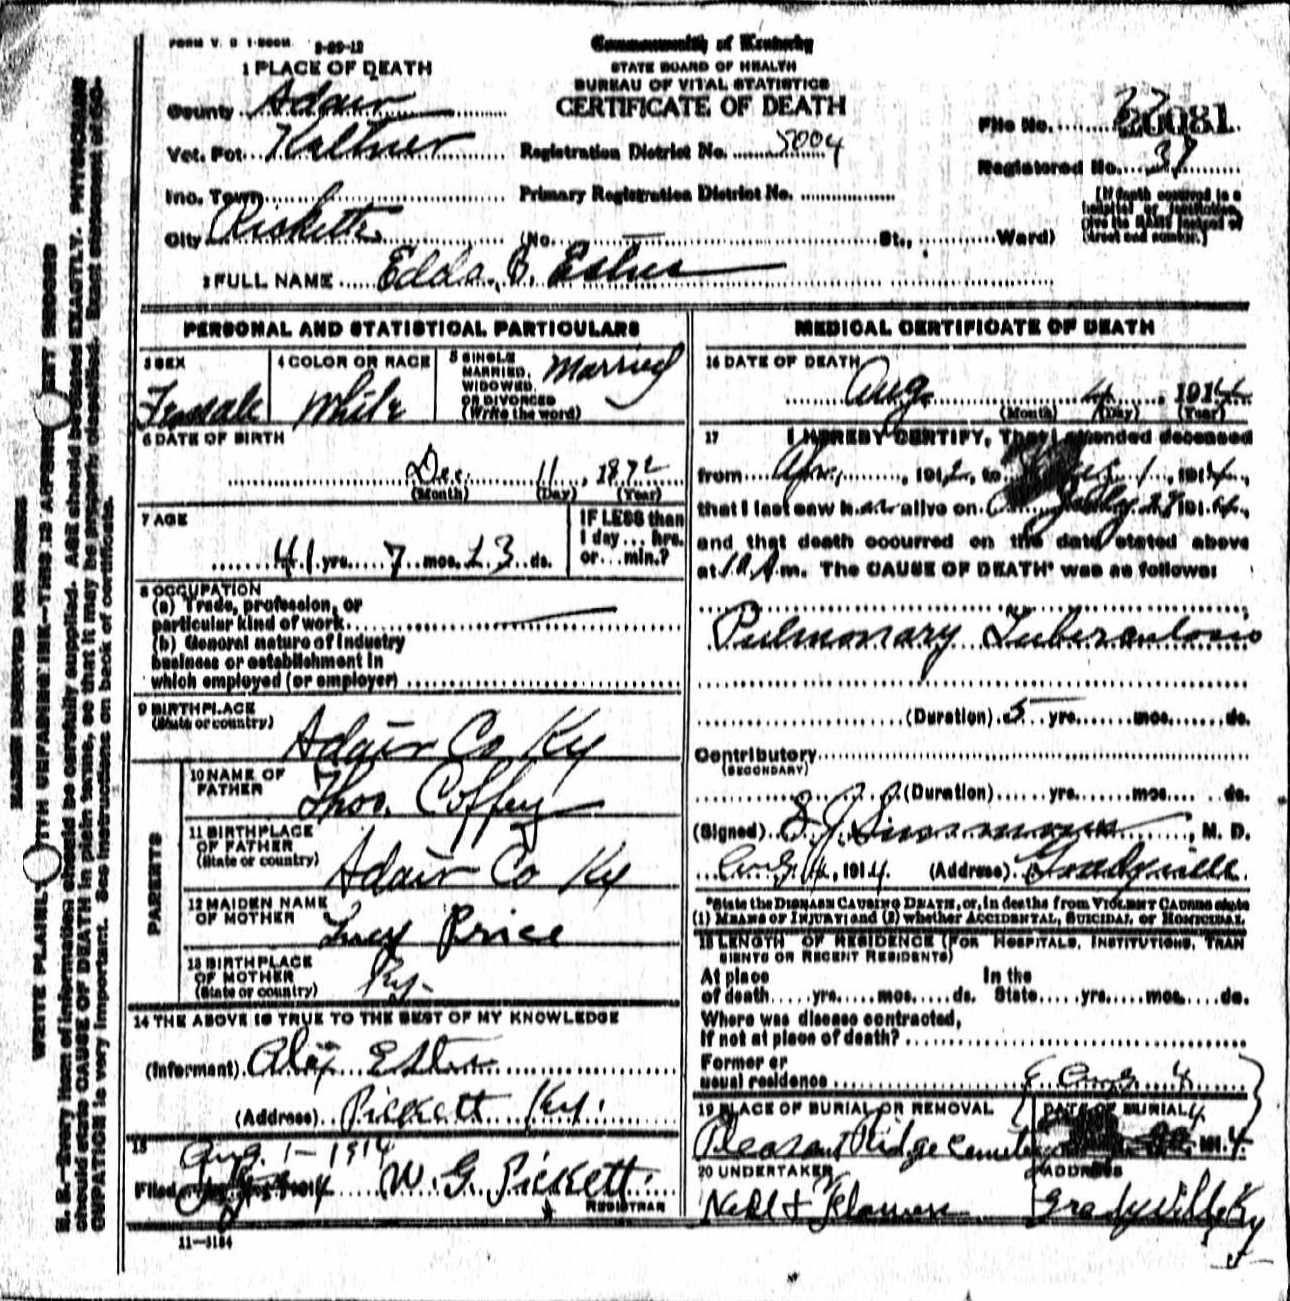 FORM V. S 1-500M 8-29-12
Commonwealth of Kentucky
STATE BOARD OF HEALTH
BUREAU OF VITAL STATISTICS
CERTIFICATE OF DEATH
1 PLACE OF DEATH
County Adair
Vot. Pct. Keltner
Registration District No. 5004
File No. 20081
Registered No. 37
Inc. Town
Primary Registration District No.
City Picketts (No. St., Ward)
(If death occurred in a hospital or institution, give its NAME instead of street and number.)
2 FULL NAME Edda. E. Estes
PERSONAL AND STATISTICAL PARTICULARS
3 SEX Female
4 COLOR OR RACE White
5 SINGLE MARRIED, WIDOWED, OR DIVORCED (Write the word) Married
6 DATE OF BIRTH
Dec. 11, 1872
(Month) (Day) (Year)
7 AGE
41 yrs. 7 mos. 23 ds.
IF LESS than 1 day... hrs. or... min.?
8 OCCUPATION
(a) Trade, profession, or
particular kind of work
(b) General nature of Industry
business or establishment in
which employed (or employer)
9 BIRTHPLACE
(State or country)
Adair Co Ky
PARENTS
10 NAME OF FATHER Thos. Coffey
11 BIRTHPLACE OF FATHER (State or country) Adair Co Ky
12 MAIDEN NAME OF MOTHER Price
13 BIRTHPLACE OF MOTHER (State or country) Ky.
14 THE ABOVE IS TRUE TO THE BEST OF MY KNOWLEDGE
(Informant) Alex Estes
(Address) Pickett Ky.
15
Aug. 1- 1914
Filed W. G. Pickett
REGISTRAR
11-3184
MEDICAL CERTIFICATE OF DEATH
16 DATE OF DEATH
Aug. 4, 1914
(Month) (Day) (Year)
17 I HEREBY CERTIFY, That I attended deceased
from Apr., 1912, to 1, 1914,
that I last saw her alive on July 28 1914,
and that death occurred on the date stated above
at 10 A m. The CAUSE OF DEATH* was as follows:
Pulmonary Tuberculosis
(Duration) 5 yrs. mos. ds.
Contributory
(SECONDARY)
(Duration) yrs. mos. ds.
(Signed) S. J. Simmons, M. D.
Aug 4, 1914. (Address) Gradyville.
*State the DISEASE CAUSING DEATH, or, in deaths from VIOLENT CAUSES state
(1) MEANS OF INJURY; and (2) whether ACCIDENTAL, SUICIDAL or HOMICIDAL
18 LENGTH OF RESIDENCE (FOR HOSPITALS, INSTITUTIONS, TRAN
SIENTS OR RECENT RESIDENTS)
At place of death yrs. mos. ds. In the State yrs. mos. ds.
Where was disease contracted,
If not at place of death?
Former or
usual residence
Aug 4
19 PLACE OF BURIAL OR REMOVAL
Pleasant Ridge Cemetery
DATE OF BURIAL 4
191 4
20 UNDERTAKER
ADDRESS
Gradyville Ky
N. B.—Every item of information should be carefully supplied. AGE should be stated EXACTLY. PHYSICIANS
should state CAUSE OF DEATH in plain terms, so that it may be properly classified. Exact statement of OC-
CUPATION is very important. See instructions on back of certificate.
WRITE PLAINLY WITH UNFADING INK—THIS IS A PERMANENT RECORD
MARGIN RESERVED FOR BINDING